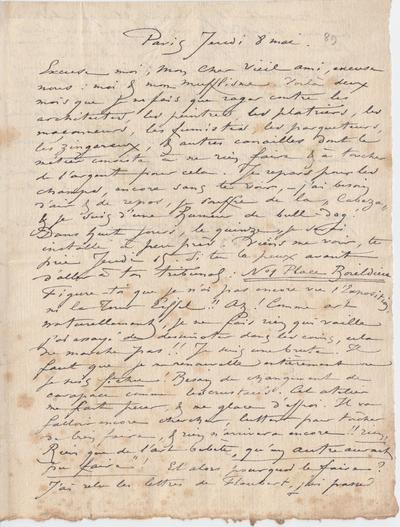 Paris Jeudi 8 mai.
89
Excuse moi, mon cher vieil ami, excuse
nous: moi & mon muflisme. Voilà deux
mois que je ne fais que rager contre les
architectes, les peintres les platriers, les
maçonneurs, les fumistes les parqueteurs,
les zingueurs, & autres canailles dont le
métier consiste à ne rien faire & à toucher
de l'argent pour cela. Je repars pour les
champs, encore sans te voir, – j'ai besoin
d'air & de repos, je souffre de la "Cabeza,"
& je suis d'une humeur de bull-dog!
Dans huit jours, le quinze, je serai
installé à peu près. Viens me voir, te
prie Jeudi 15 si tu le peux avant
d'aller à ton tribunal: No 1 Place Boïeldieu
Figure toi que je n'ai pas encore vu l'Exposition
ni la Tour Eiffel!! Az! Comme art
naturellement, je ne fais rien qui vaille
j'ai essayé de dessinoter dans les coins, cela
ne marche pas!! Je suis une brute. Il
faut que je me renouvelle entièrement ou
je suis fichu! Besoin de changement de
carapace comme les crustacés! Cet atelier
me fait peur, & me glace d'effroi. Il va
falloir encore chercher, lutter, tâcher
de bien faire, & rien n'arrivera encore!! rien;
Rien que de l'art bébête, qu'un autre aurait
pu faire"! Et alors pourquoi le faire?
J'ai relu les lettres de Flaubert, j'ai passé